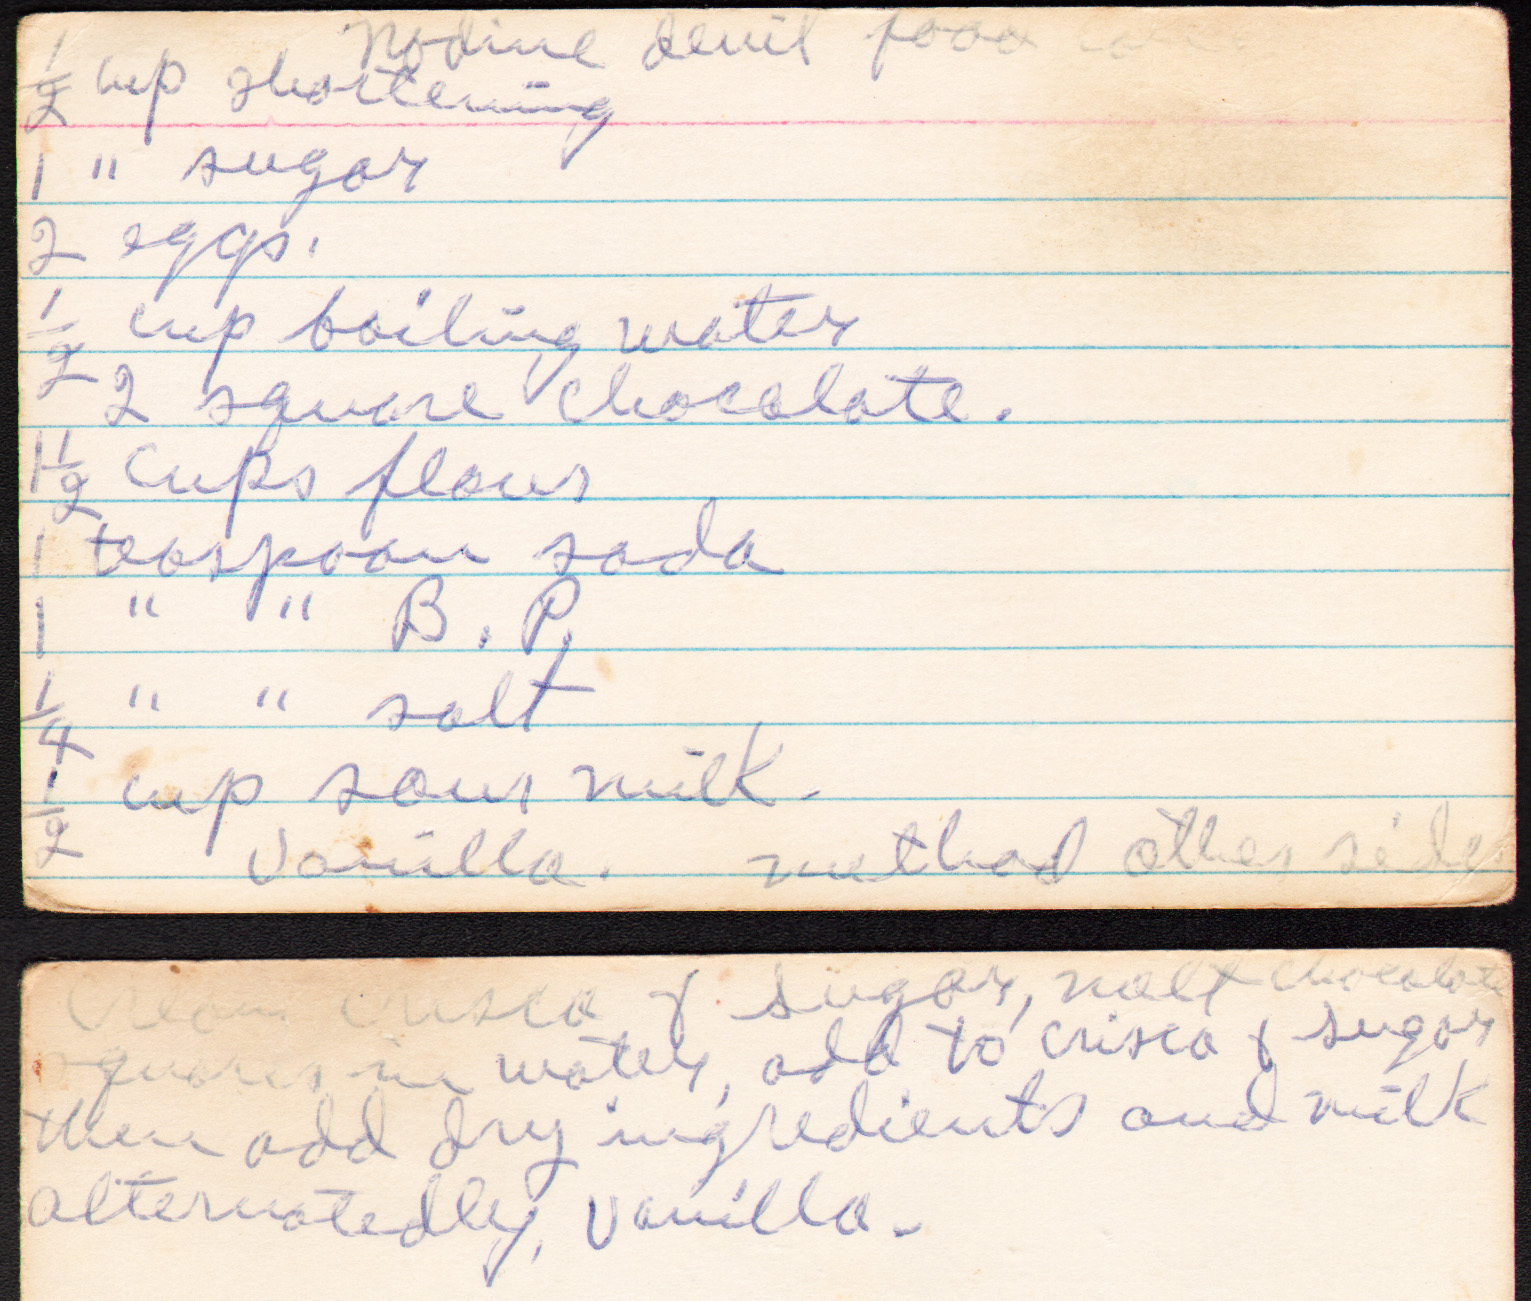 Nodine devil food cake
1/2 cup shortening
1 " sugar
2 eggs.
1/2 cup boiling water
2 square chocolate.
1 1/2 cups flour
1 teaspoon soda
1 " " B.P.
1/4 " " salt
1/2 cup sour milk.
Vanilla. method other side
Cream crisco & sugar, melt chocolate
squares in water, add to crisco & sugar
then add dry ingredients and milk
alternatedly, vanilla.